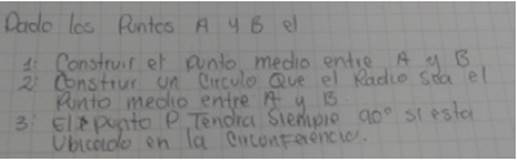 Dado los Puntos A y B el
1: Construir el punto medio entre A y B
2: Construir un Circulo Que el Radio sea el
Punto medio entre A y B
3: El punto P Tendra Siempre 90° si esta
Ubicado en la Circonferencio.